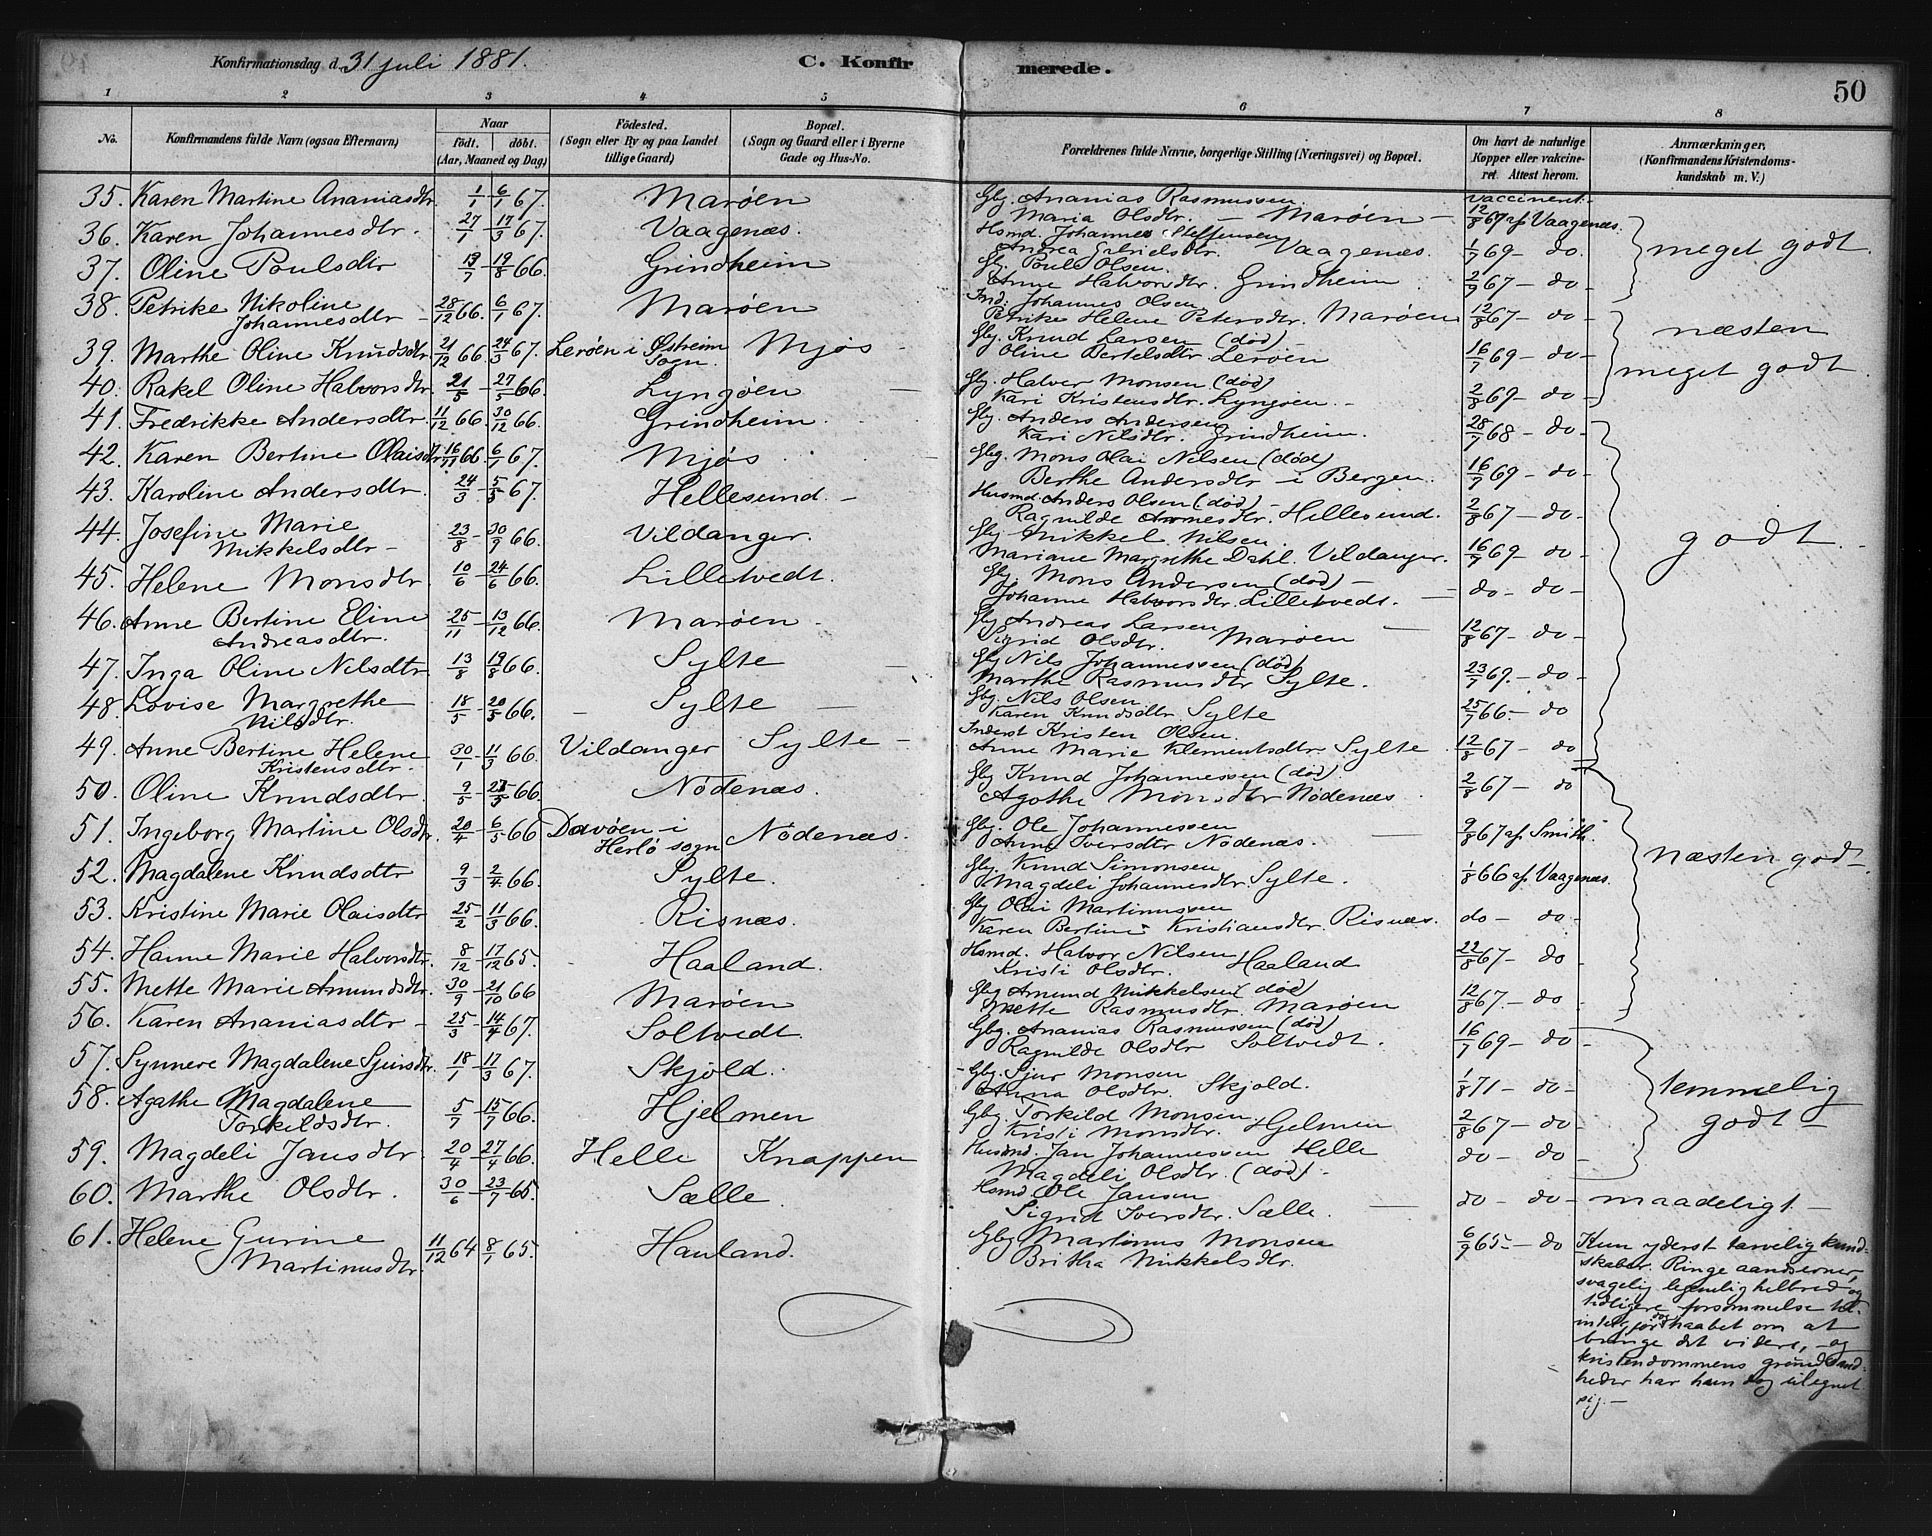 Konfirmationsdag d. 31 juli 1881. C. Konfirmerede. 50
1 2 3 4 5 6 7 8
No. Konfirmandens fulde Navn (ogsaa Efternavn) Naar födt. döbt. (Aar, Maaned og Dag) Födested. (Sogn eller By og paa Landet tillige Gaard) Bopæl. (Sogn og Gaard eller i Byerne Gade og Hus-No. Forældrenes fulde Navne, borgerlige Stilling (Næringsvei) og Bopæl. Om havt de naturlige Kopper eller vakcineret. Attest herom. Anmærkninger. (Konfirmandens Kristendomskundskab m. V.)
35. Karen Martine Ananiasdtr. 1/1 6/1 67. Marøen Gbg. Ananias Rasmussen. Maria Olsdtr. – Marøen – vaccineret. 12/8 67 af Vaagenæs.
36. Karen Johannesdtr. 27/1 – 17/3 67. Vaagenæs. Hsmd. Johannes Steffensen Andrea Gabrielsdtr. Vaagenæs. 1/7 69 – do. meget godt.
37. Oline Poulsdtr 13/7 – 19/8 66. Grindheim Gbg. Poul Olsen. Anne Halvorsdtr. Grindheim 2/9 67 – do –
38. Petrike Nikoline Johannesdtr – 28/12 66. 6/1 67. Marøen Ind. Johannes Olsen Petrike Helene Petersdtr. Marøen 12/8 67 – do –
39. Marthe Oline Knudsdtr. 21/12 66. 24/3 67. Lerøen i Østheim sogn. Mjøs – Gbg. Knud Larsen (død) – Oline Bertelsdtr Lerøen 16/7 69 – do – næsten meget godt.
40. Rakel Oline Halvorsdtr. 21/5 – 27/5 66. Lyngøen – Gbg. Halver Monsen (død) Kari Kristensdtr. Lyngøen. – 2/8 69 – do –
41. Fredrikke Andersdtr. 11/12 66. 30/12 66. Grindheim. Gbg. Anders Andersen Kari Nilsdtr. Grindheim. 28/7 68 – do –
42. Karen Bertine Olaisdtr 16/11 66. 6/1 67. Mjøs Gbg. Mons Olai Nilsen (død) Berthe Andersdtr – i Bergen. 16/7 69 – do –
43. Karoline Andersdtr. 24/3 – 5/5 67. Hellesund. – Husmd. Anders Olsen (død) – Ragnilde Arnesdtr. Hellesund. 2/8 67 – do –
44. Josefine Marie Mikkelsdtr – 23/8 – 30/9 66. Vildanger. Gbg. Mikkel Nilsen Mariane Margrethe Dahl. Vildanger. 16/7 69 – do – godt.
45. Helene Monsdtr. 10/6 – 24/6 66. Lilletvedt. Gbg. Mons Andersen (død) – Johanne Halvorsdtr. Lilletvedt. – do – do –
46. Anne Bertine Eline Andreasdtr. 25/11 – 13/12 66. Marøen – Gbg Andreas Larsen Sigrid Olsdtr. Marøen 12/8 67 – do –
47. Inga Oline Nilsdtr. 13/8 – 19/8 66. Sylte – Gbg Nils Johannessen (død) Marthe Rasmusdtr Sylte. 23/7 69. – do –
48. Lovise Margrethe Nilsdtr. 18/5 – 20/5 66. – Sylte – Gbg. Nils Olsen Karen Knudsdtr Sylte 25/7 66. – do
49. Anne Bertine Helene Kristensdtr. 30/1 – 11/3 66. Vildanger Sylte – Inderst Kristen Olsen. Anne Marie Klementsdtr. Sylte 12/8 67 – do
50. Oline Knudsdtr. 9/5 – 66. Nödenæs. Gbg Knud Johannessen (død). Agathe Monsdtr Nödenæs 2/8 67 – do
51. Ingeborg Martine Olsdtr. 20/4 – 6/5 66 Davøen i Herlö sogn Nödenæs. Gbg. Ole Johannessen Anne Iversdtr Nödenæs. 9/8 67 af Smith.
52. Magdalene Knudsdtr 9/3 – 2/4 66. Sylte. Gbg Knud Simonsen Magdeli Johannesdtr. Sylte. 1/8 66 af Vaagenæs. næsten godt
53. Kristine Marie Olaisdtr 25/2 – 11/3 66. Risnæs. Gbg Olai Martinussen Karen Bertine Kristiansdtr. Risnæs. do – do –
54. Hanne Marie Halvorsdtr. 8/12 – 17/12 65. Haaland. Hsmd. Halvor Nilsen Kristi Olsdtr. Haaland 22/8 67 – do
55. Mette Marie Amundsdtr. 30/9 – 21/10 66 Marøen Gbg Amund Mikkelsen (død) Mette Rasmusdtr. Marøen 12/8 67. – do –
56. Karen Ananiasdtr – 25/3 – 14/4 67. Soltvedt. Gbg. Ananias Rasmussen (død) Ragnilde Olsdtr Soltvedt. 16/7 69 – do –
57. Synnere Magdalene Sjursdtr. 18/1 – 17/3 67. Skjold. Gbg. Sjur Monsen Anna Olsdtr. Skjold. 1/8 71 – do – temmelig godt –
58. Agathe Magdalene Torkildsdtr. 5/7 – 15/7 66. Hjelmen Gbg Torkild Monsen. Kristi Monsdtr. Hjelmen 2/8 67 – do –
59. Magdeli Jansdtr. 20/4 – 27/4 66. Helle Knappen Husmd. Jan Johannessen Helle Magdeli Olsdtr. (død) – do – do –
60. Marthe Olsdtr. 30/6 – 23/7 65. Sælle. Hsmd. Ole Jansen Sigrid Iversdtr. Sælle. – do – do – maadeligt –
61. Helene Gurine Martinusdtr. 11/12 64 8/1 65. Hauland. Gbg Martinus Monsen Britha Mikkelsdtr. 6/9 65 – do Kun yderst tarvelig kund-
skaber. Ringe aandsevner,
svagelig legemlig helbred og
tidligere forsømmelse til-
intetgjør haabet om at
bringe det videre, – og
kristendommens grundsand-
heder har hun dog tilegnet
sig. –